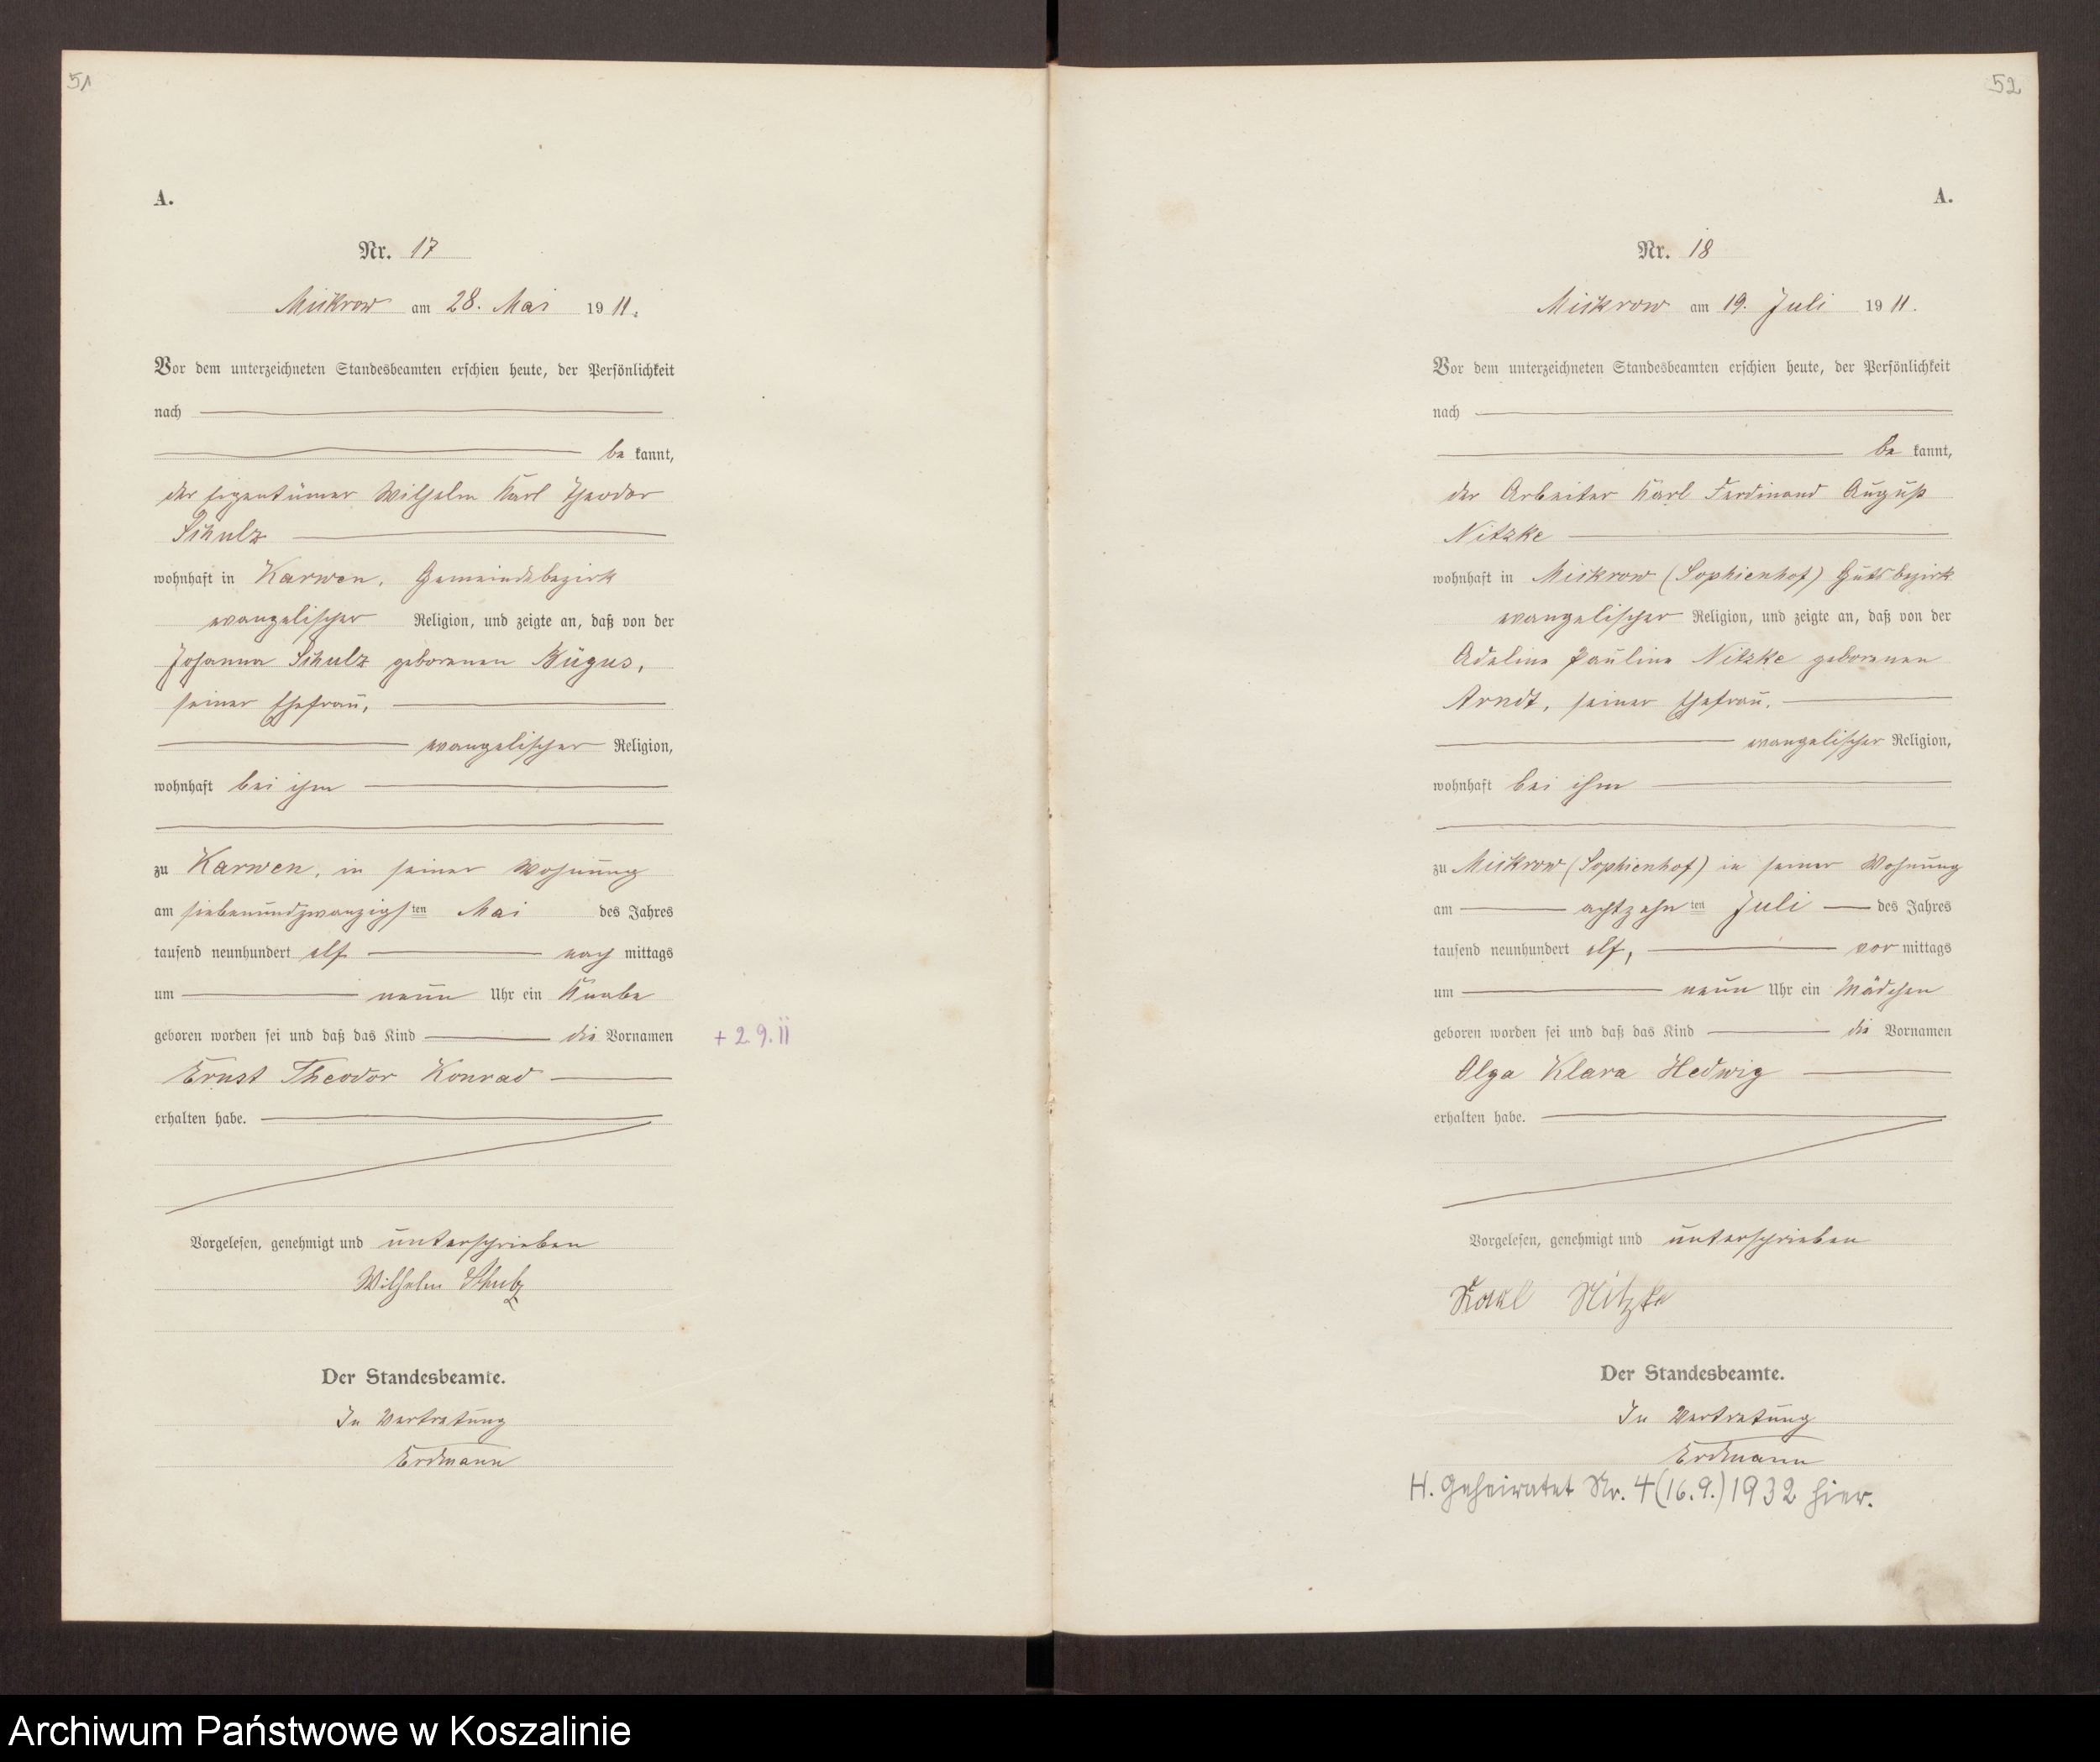 51
A.
Nr. 17
Mickrow am 28. Mai 1911.
Vor dem unterzeichneten Standesbeamten erschien heute, der Persönlichkeit
nach
be kannt,
der Eigentümer Wilhelm Karl Theodor
Schulz
wohnhaft in Karwen, Gemeindebezirk
evangelischer Religion, und zeigte an, daß von der
Johanna Schulz geborenen
seiner Ehefrau,
evangelischer Religion,
wohnhaft bei ihm
zu Karwen, in seiner Wohnung
am siebenundzwanzigsten Mai des Jahres
tausend neunhundert elf nach mittags
um neun Uhr ein Knabe
geboren worden sei und daß das Kind die Vornamen
+ 2 9. 11
Ernst Theodor Konrad
erhalten habe.
Vorgelesen, genehmigt und unterschrieben
Wilhelm Schulz
Der Standesbeamte.
In Vertretung
Erdmann
52
A.
Nr. 18
Mickrow am 19. Juli 1911.
Vor dem unterzeichneten Standesbeamten erschien heute, der Persönlichkeit
nach
be kannt,
der Arbeiter Karl Ferdinand August
Nitzke
wohnhaft in Mickrow (Sophienhof) Gutsbezirk
evangelischer Religion, und zeigte an, daß von der
Adeline Pauline Nitzke geborenen
Arndt, seiner Ehefrau,
evangelischer Religion,
wohnhaft bei ihm
zu Mickrow (Sophienhof) in seiner Wohnung
am achtzehnten Juli des Jahres
tausend neunhundert elf, vor mittags
um neun Uhr ein Mädchen
geboren worden sei und daß das Kind die Vornamen
Olga Klara Hedwig
erhalten habe.
Vorgelesen, genehmigt und unterschrieben
Karl Nitzke
Der Standesbeamte.
In Vertretung
Erdmann
H. Geheiratet Nr. 4 (16.9.) 1932 hier.
Archiwum Państwowe w Koszalinie